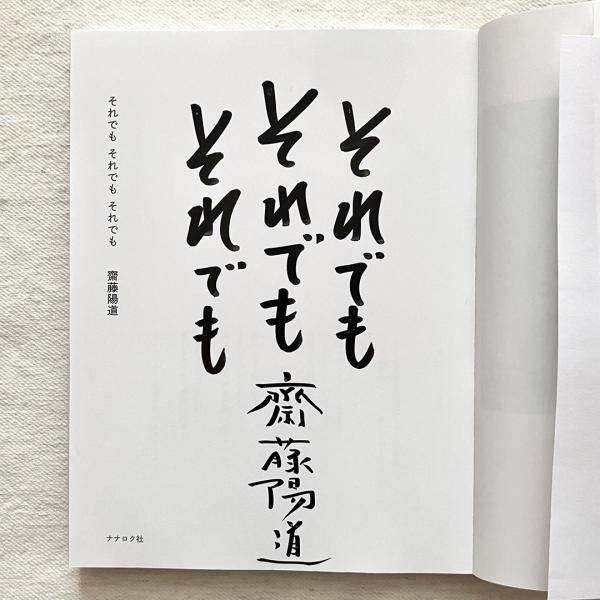 それでも
それでも
それでも
齋藤陽道
それでも それでも それでも
齋藤陽道
ナナロク社